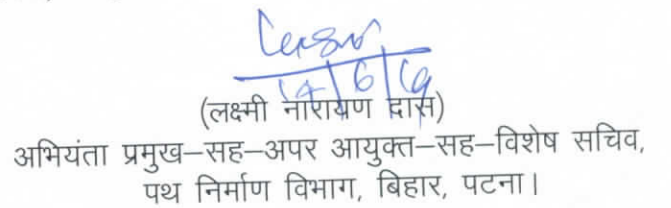 14/6/19
(लक्ष्मी नारायण दास)
अभियंता प्रमुख–सह–अपर आयुक्त–सह–विशेष सचिव,
पथ निर्माण विभाग, बिहार, पटना।